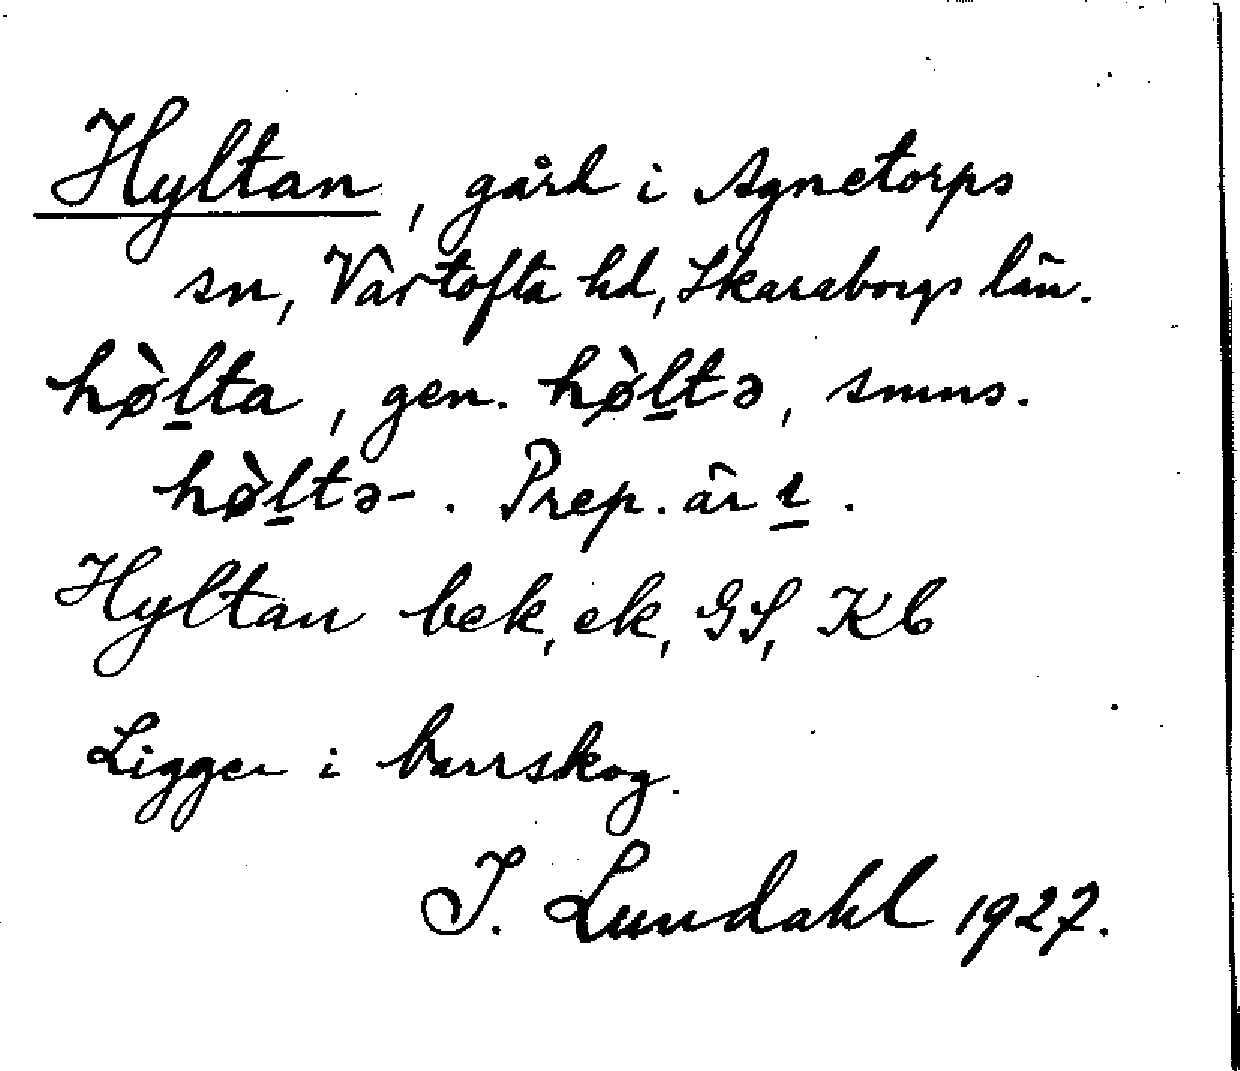 Hyltan, gård i Agnetorps
sn, Vartofta hd, Skaraborgs län.
hø̀l̠ta, gen. hø̀l̠tə, smns.
hø̀l̠tə-. Prep. är ɩ.
Hyltan bek, ek, GS, Kb
Ligger i barrskog.
I. Lundahl 1927.